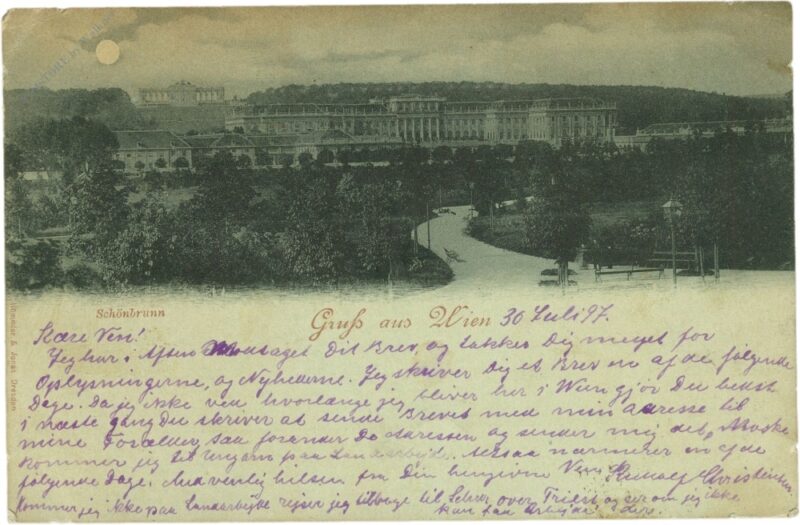 Schönbrunn
Gruß aus Wien 30 Juli 97.
Kære Ven!
Jeg har i Aften Modtaget Dit Brev, og takker Dig meget for
Oplysningerne, og Nyhederne. Jeg skriver Dig et Brev en af de følgende
Dage. Da jeg ikke ved hvorlænge jeg bliver her i Wien gjör Du bedst
i næste gang Du skriver at sende Brevet med min adresse til
mine Forælder, saa forandre De Adressen og sender mig det, Maaske
kommer jeg til Ungarn paa Landarbejd. Altsaa nærmere en af de
følgende Dage. Med venlig hilsen fra Din hengivne Ven Rudolf Christensen
Kommer jeg ikke paa Landarbejde rejser jeg tilbage til over Triest og ser om jeg ikke
kan faa Arbejde der.